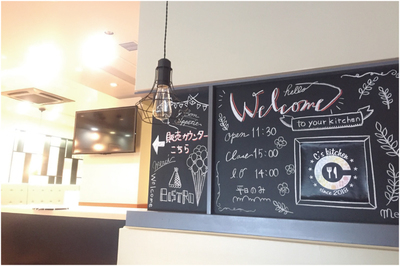 hello
Welcome
to your kitchen
open 11:30
Close 15:00
LO 14:00
平日のみ
C's kitchen
since 2011
販売カウンター
こちら
BISTRO
Welcome
Me